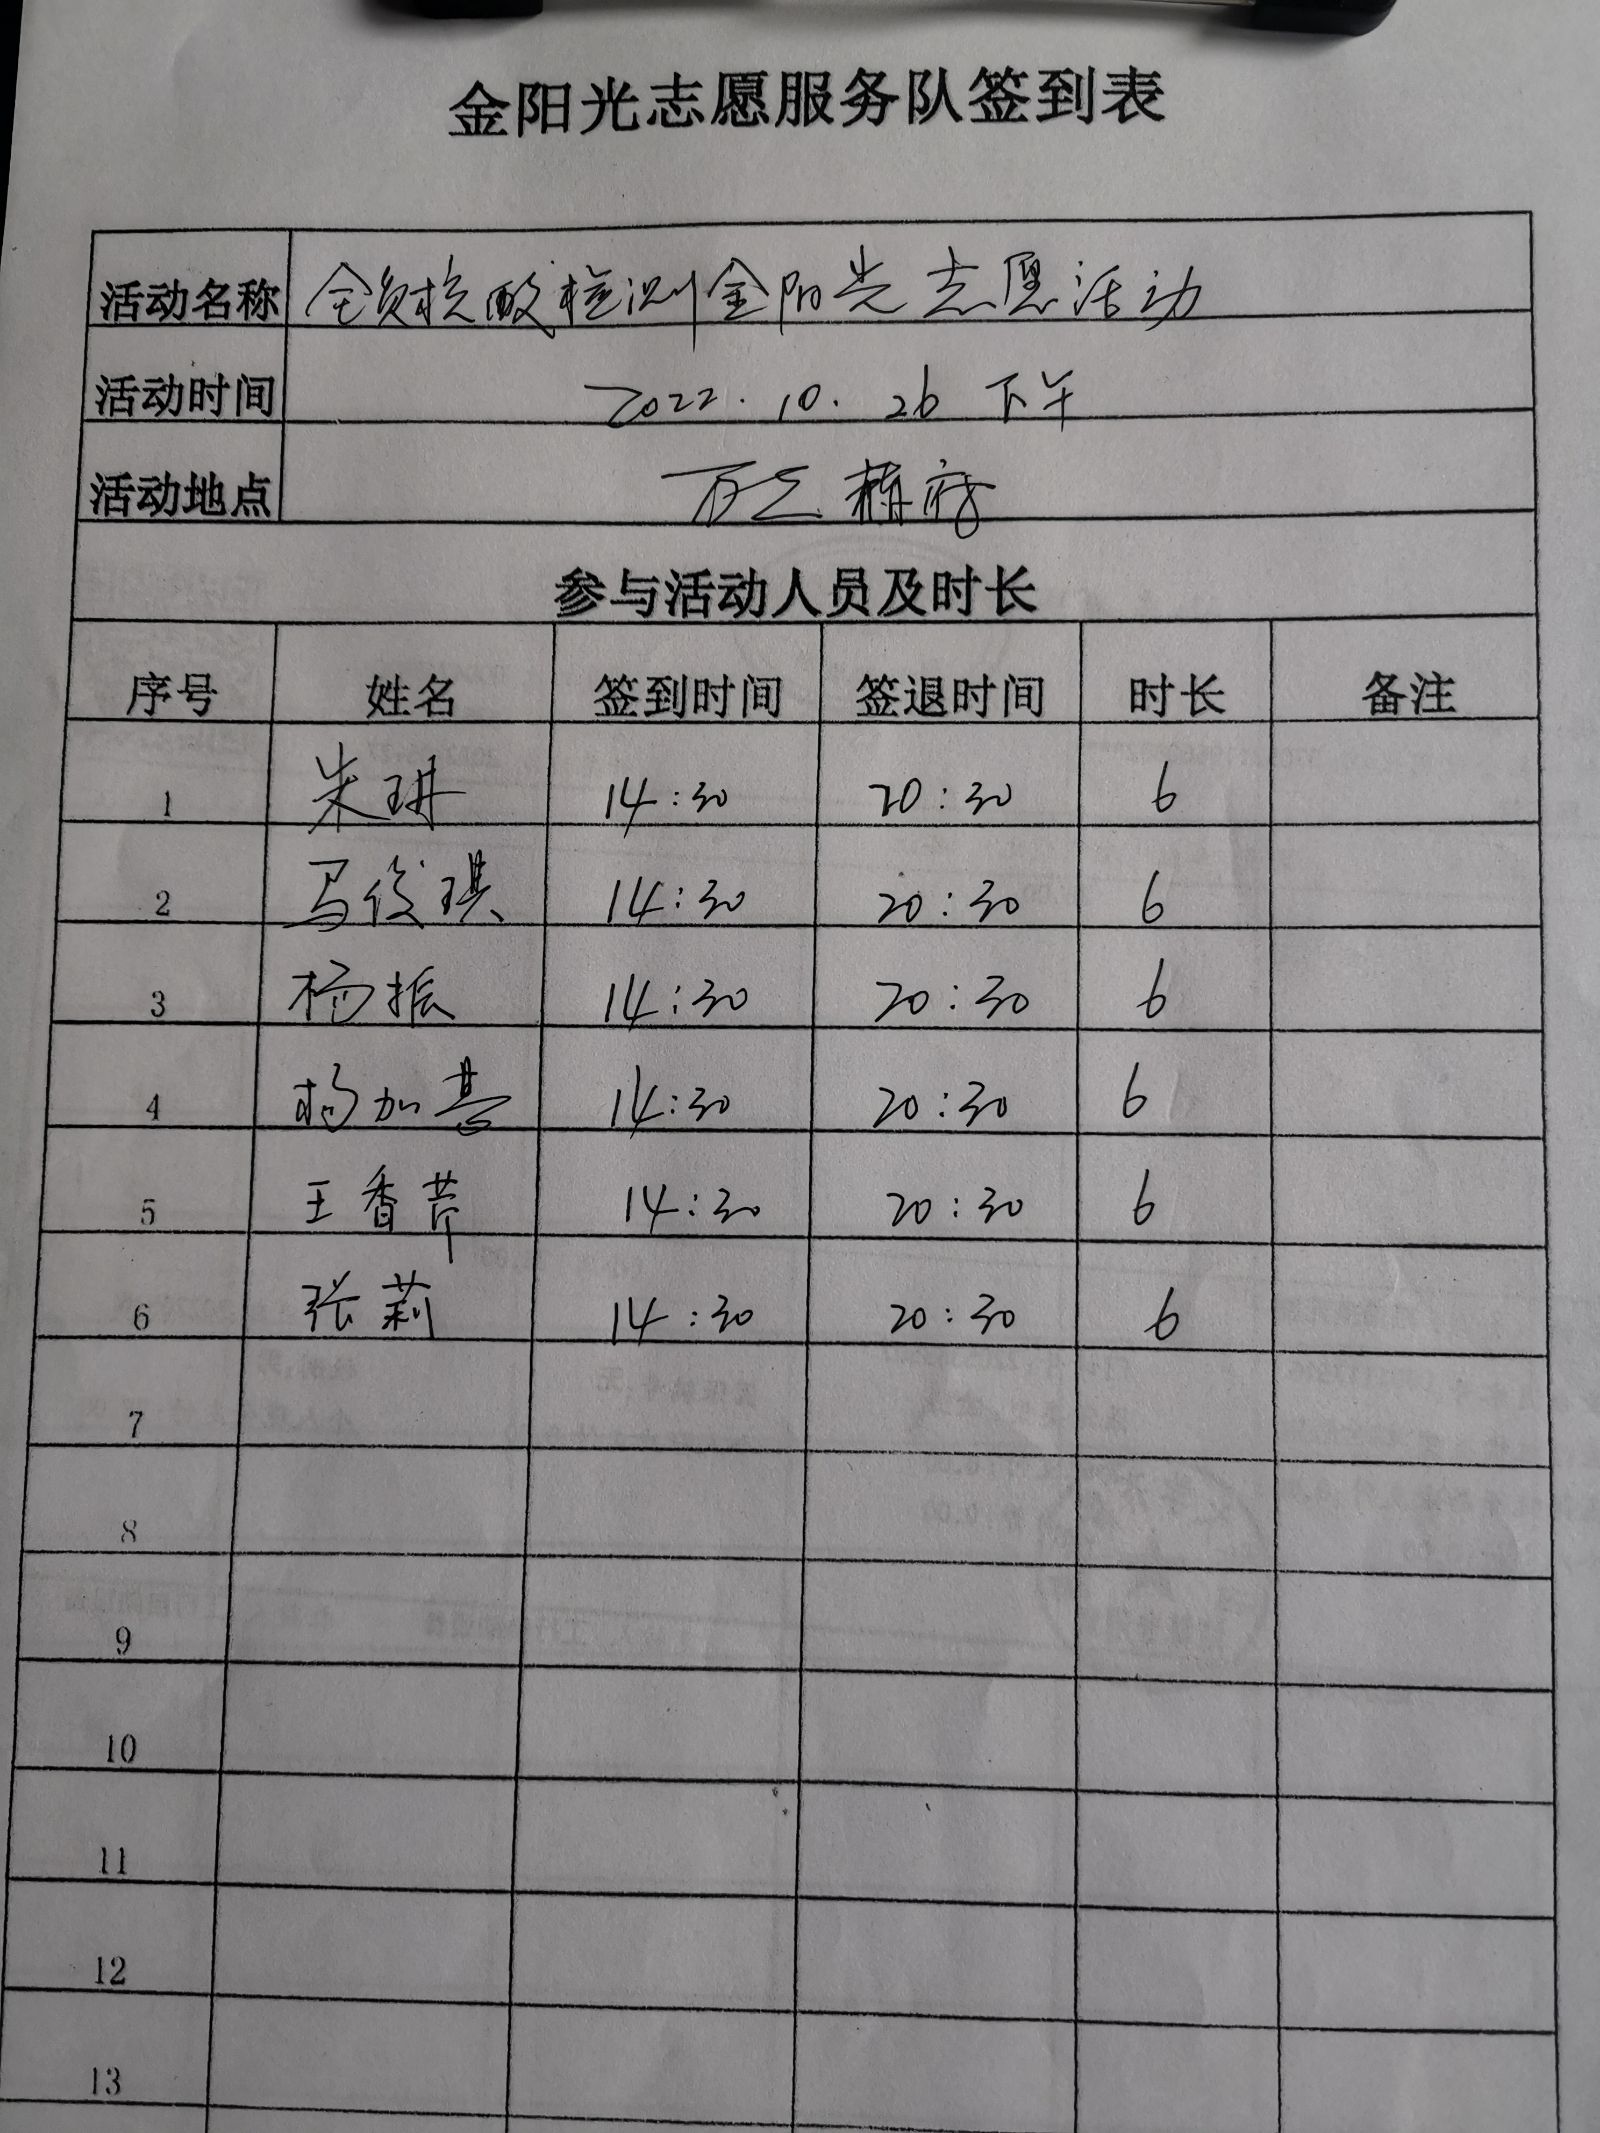 金阳光志愿服务队签到表
活动名称 全员核酸检测金阳光志愿活动
活动时间 2022.10.26 下午
活动地点
参与活动人员及时长
序号 姓名 签到时间 签退时间 时长 备注
1 朱琪 14:30 20:30 6
2 马俊琪 14:30 20:30 6
3 杨振 14:30 20:30 6
4 杨加 14:30 20:30 6
5 王香芹 14:30 20:30 6
6 张莉 14:30 20:30 6
7
8
9
10
11
12
13